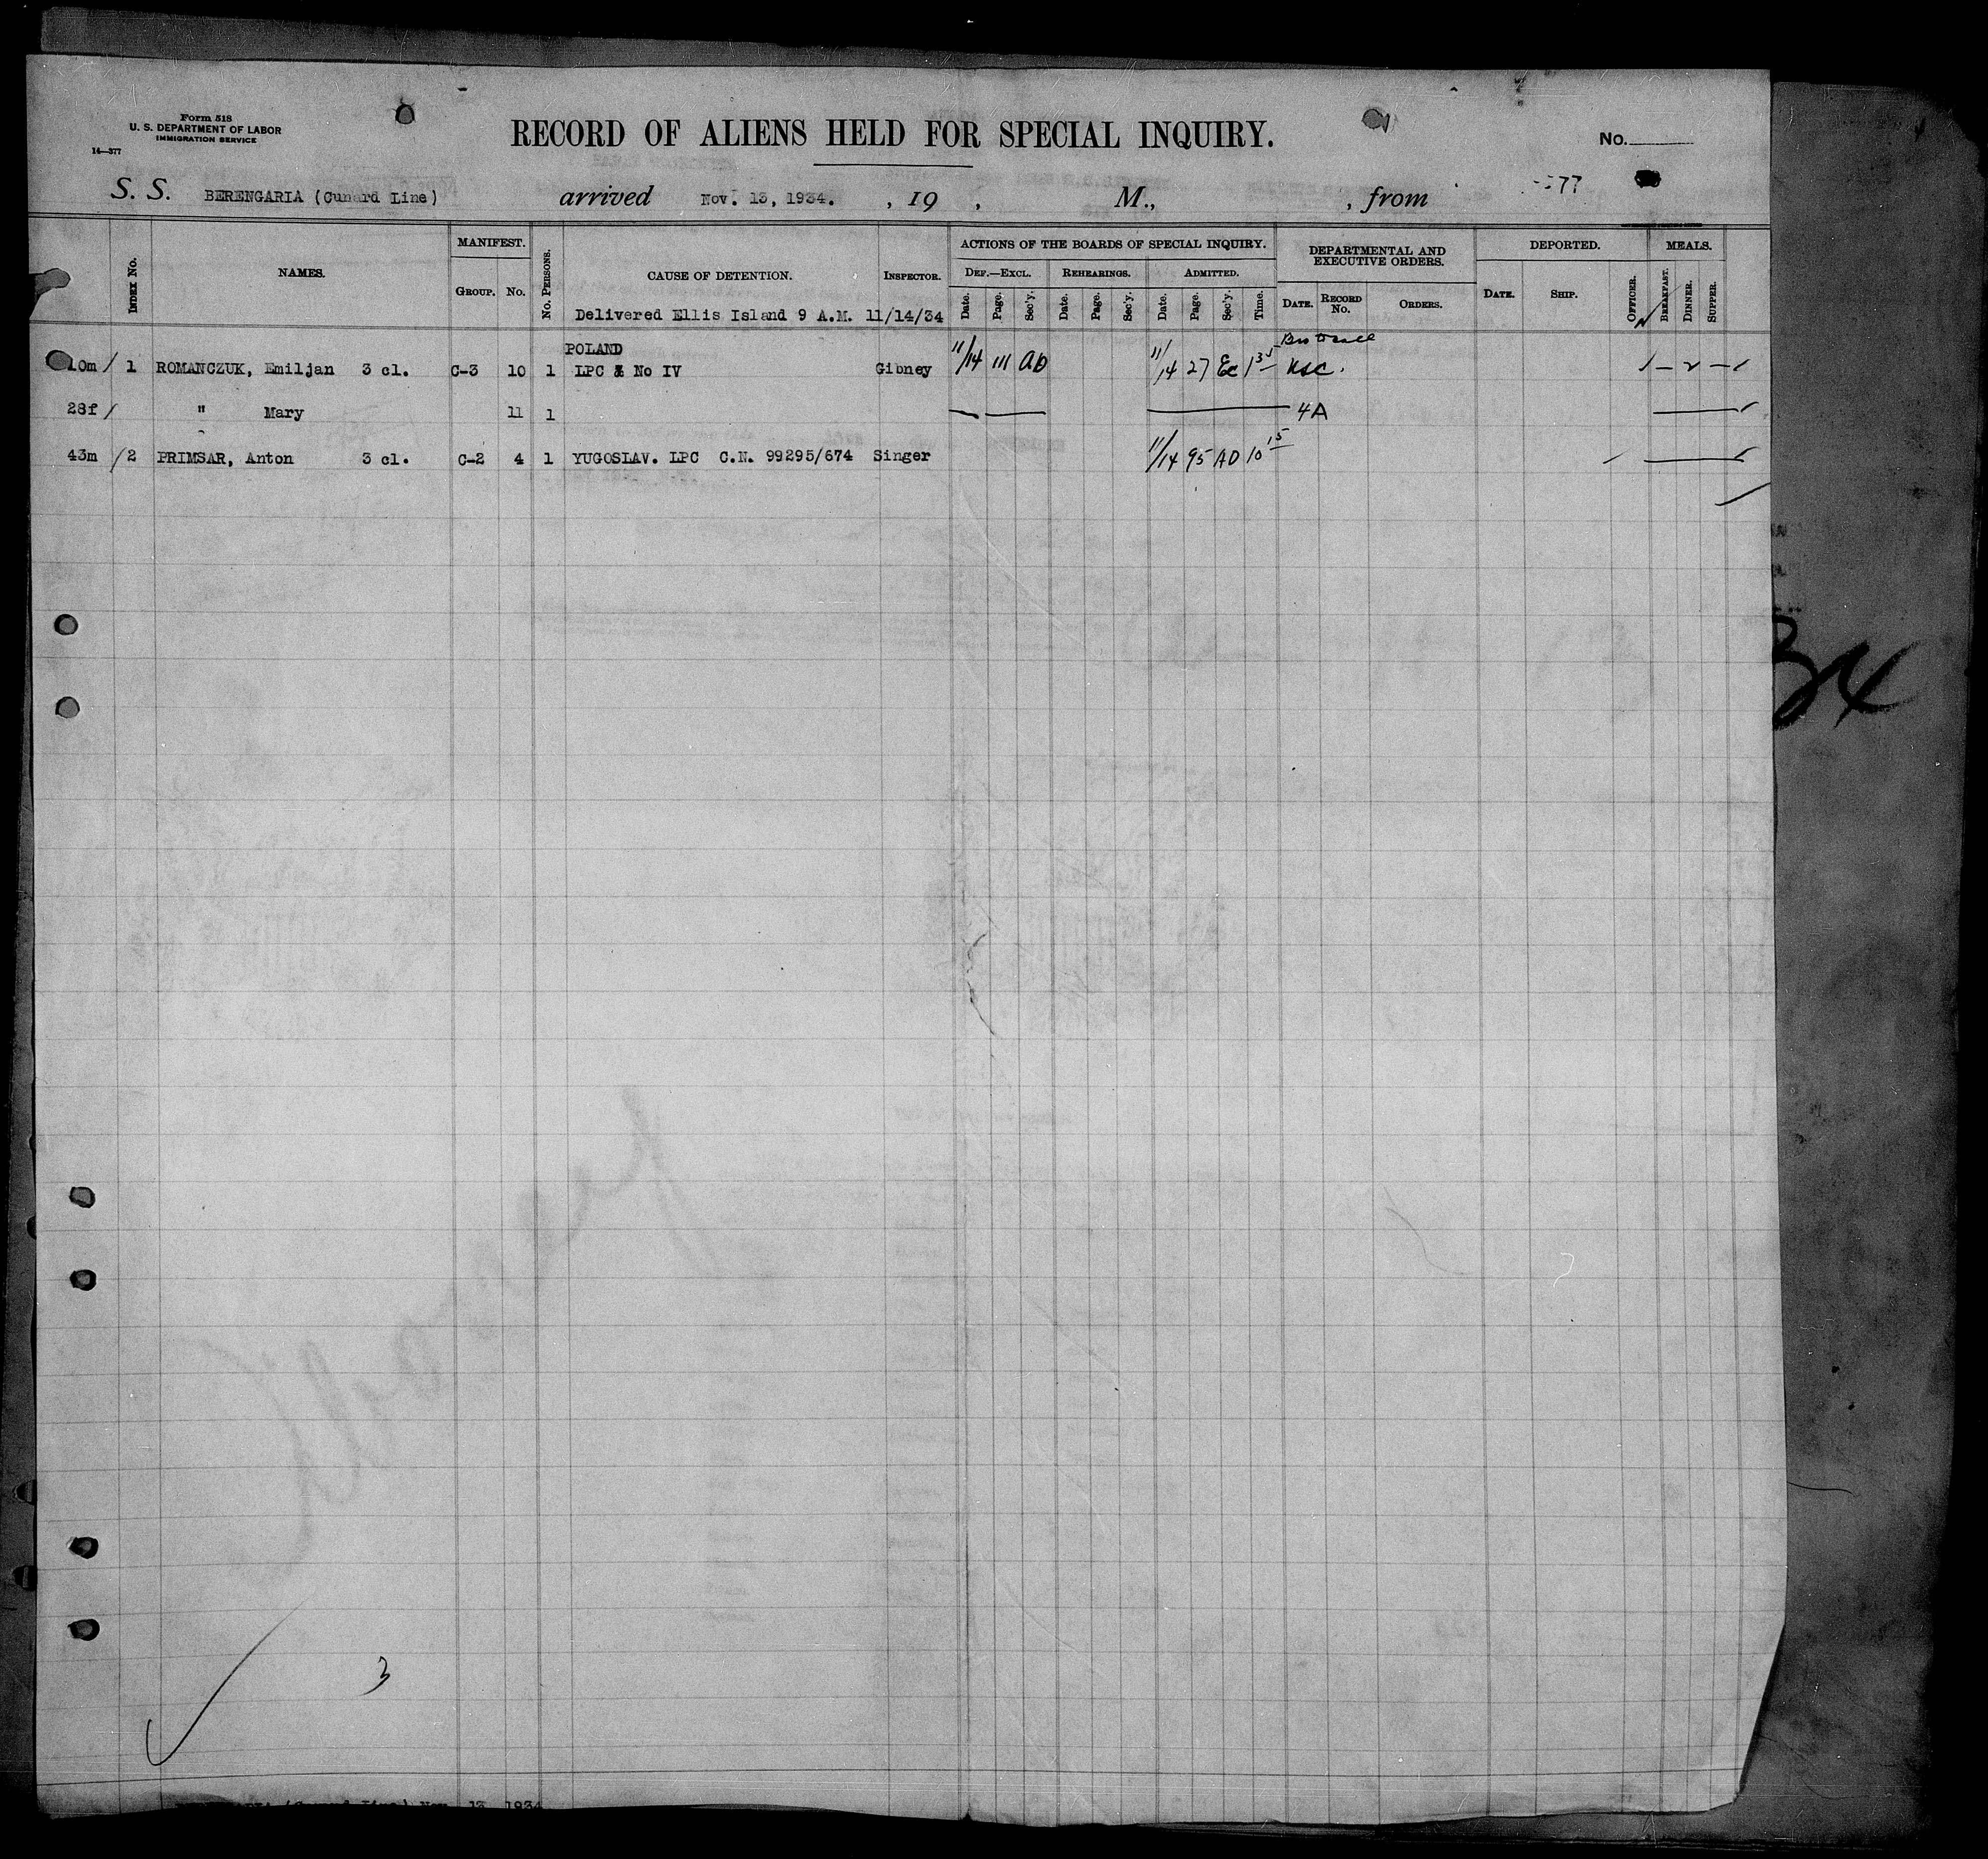 Form 518
U. S. DEPARTMENT OF LABOR
IMMIGRATION SERVICE
14—377
RECORD OF ALIENS HELD FOR SPECIAL INQUIRY.
No.
S. S. BERENGARIA (Cunard Line) arrived Nov. 13, 1934. , 19 , M., , from
577
Index No. NAMES. MANIFEST. Group. No. No. Persons. CAUSE OF DETENTION. Inspector. ACTIONS OF THE BOARDS OF SPECIAL INQUIRY. Def.—Excl. Date. Page. Sec'y. Rehearings. Date. Page. Sec'y. Admitted. Date. Page. Sec'y. Time. DEPARTMENTAL AND EXECUTIVE ORDERS. Date. Record No. Orders. DEPORTED. Date. Ship. Officer. MEALS. Breakfast. Dinner. Supper.
Delivered Ellis Island 9 A.M. 11/14/34
POLAND
10m / 1 ROMANCZUK, Emiljan 3 cl. C-3 10 1 LPC & No IV Gibney 11/14 111 AD 11/14 27 Ec 1 35 1 – 2 – 1
28f / " Mary 11 1 4A
43m / 2 PRIMSAR, Anton 3 cl. C-2 4 1 YUGOSLAV. LPC C.N. 99295/674 Singer 11/14 95 AD 10 15
34
3
(Cunard Line) Nov. 13, 1934